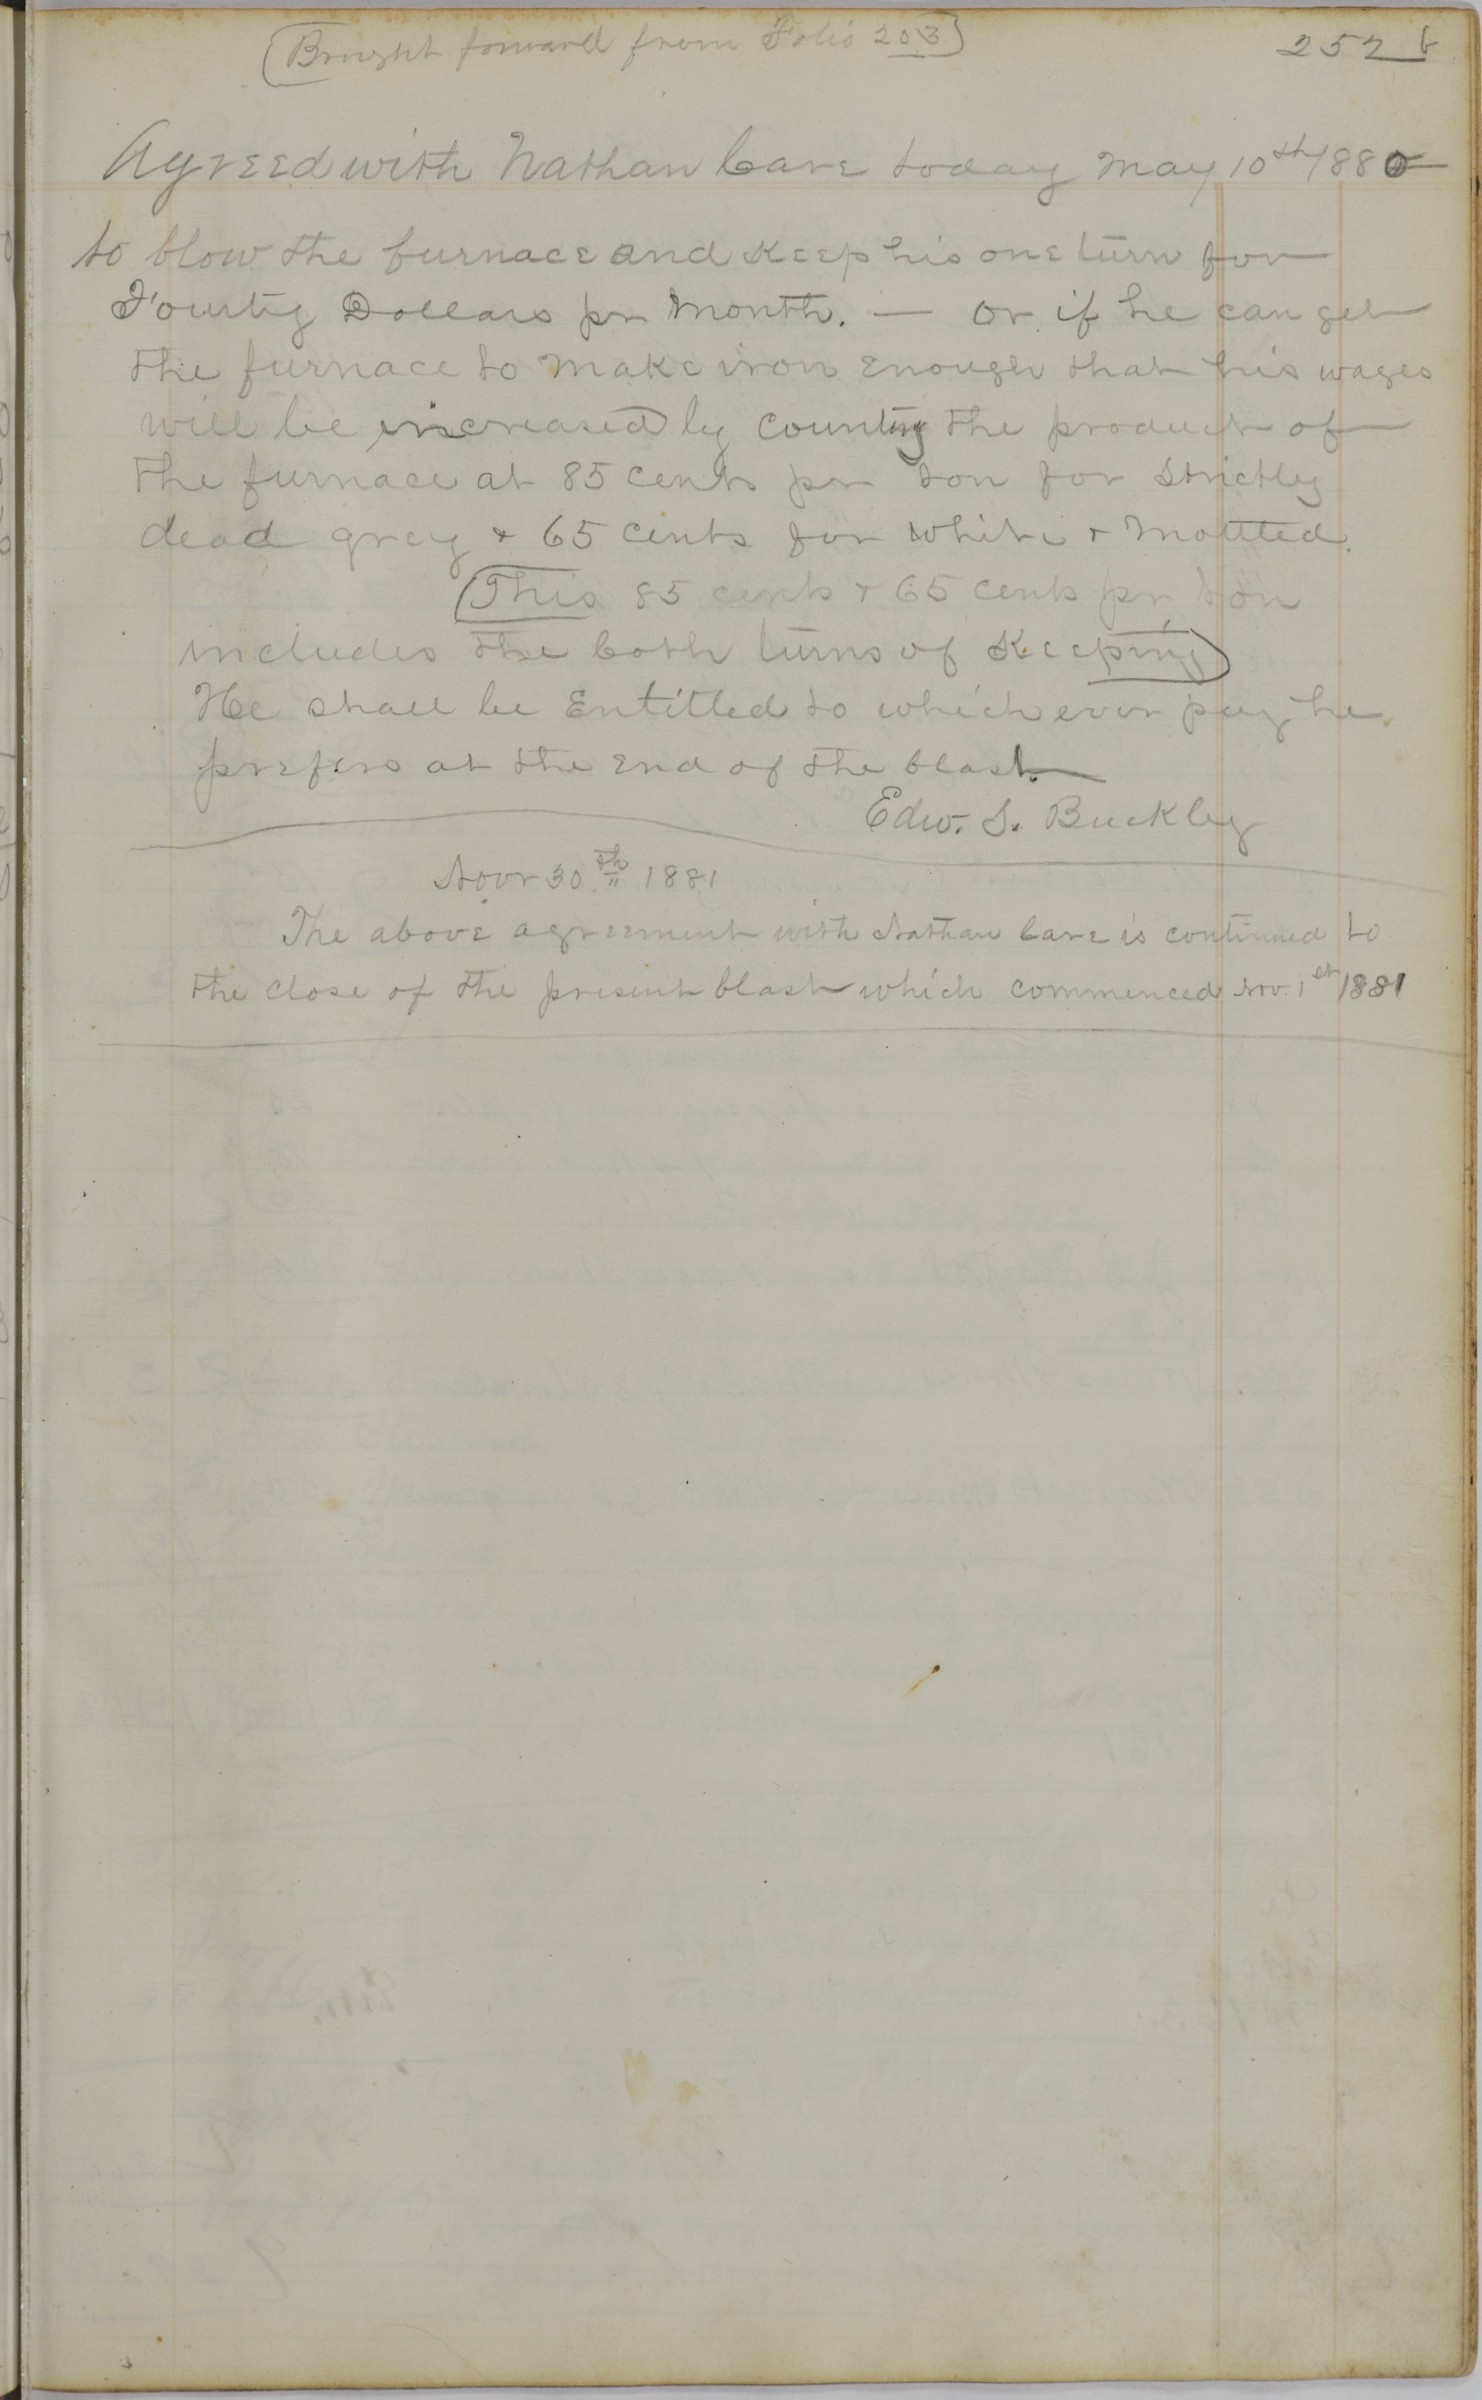 (Brought forward from Folio 203)
252 b
Agreed with Nathan Care today May 10th 1880
to blow the furnace and Keep his one turn for
Fourty Dollars pr Month. — Or if he can get
the furnace to make iron Enough that his wages
will be increased by Counting the product of
the furnace at 85 cents pr ton for Strictly
dead grey & 65 cents for white & Mottled.
(This 85 cents & 65 cents pr ton
includes the both turns of Keeping)
He shall be Entitled to which ever pay he
prefers at the End of the blast
Edw. S. Buckley
Novr 30th 1881
The above agreement with Nathan Care is continued to
the close of the present blast which commenced Nov. 1st 1881